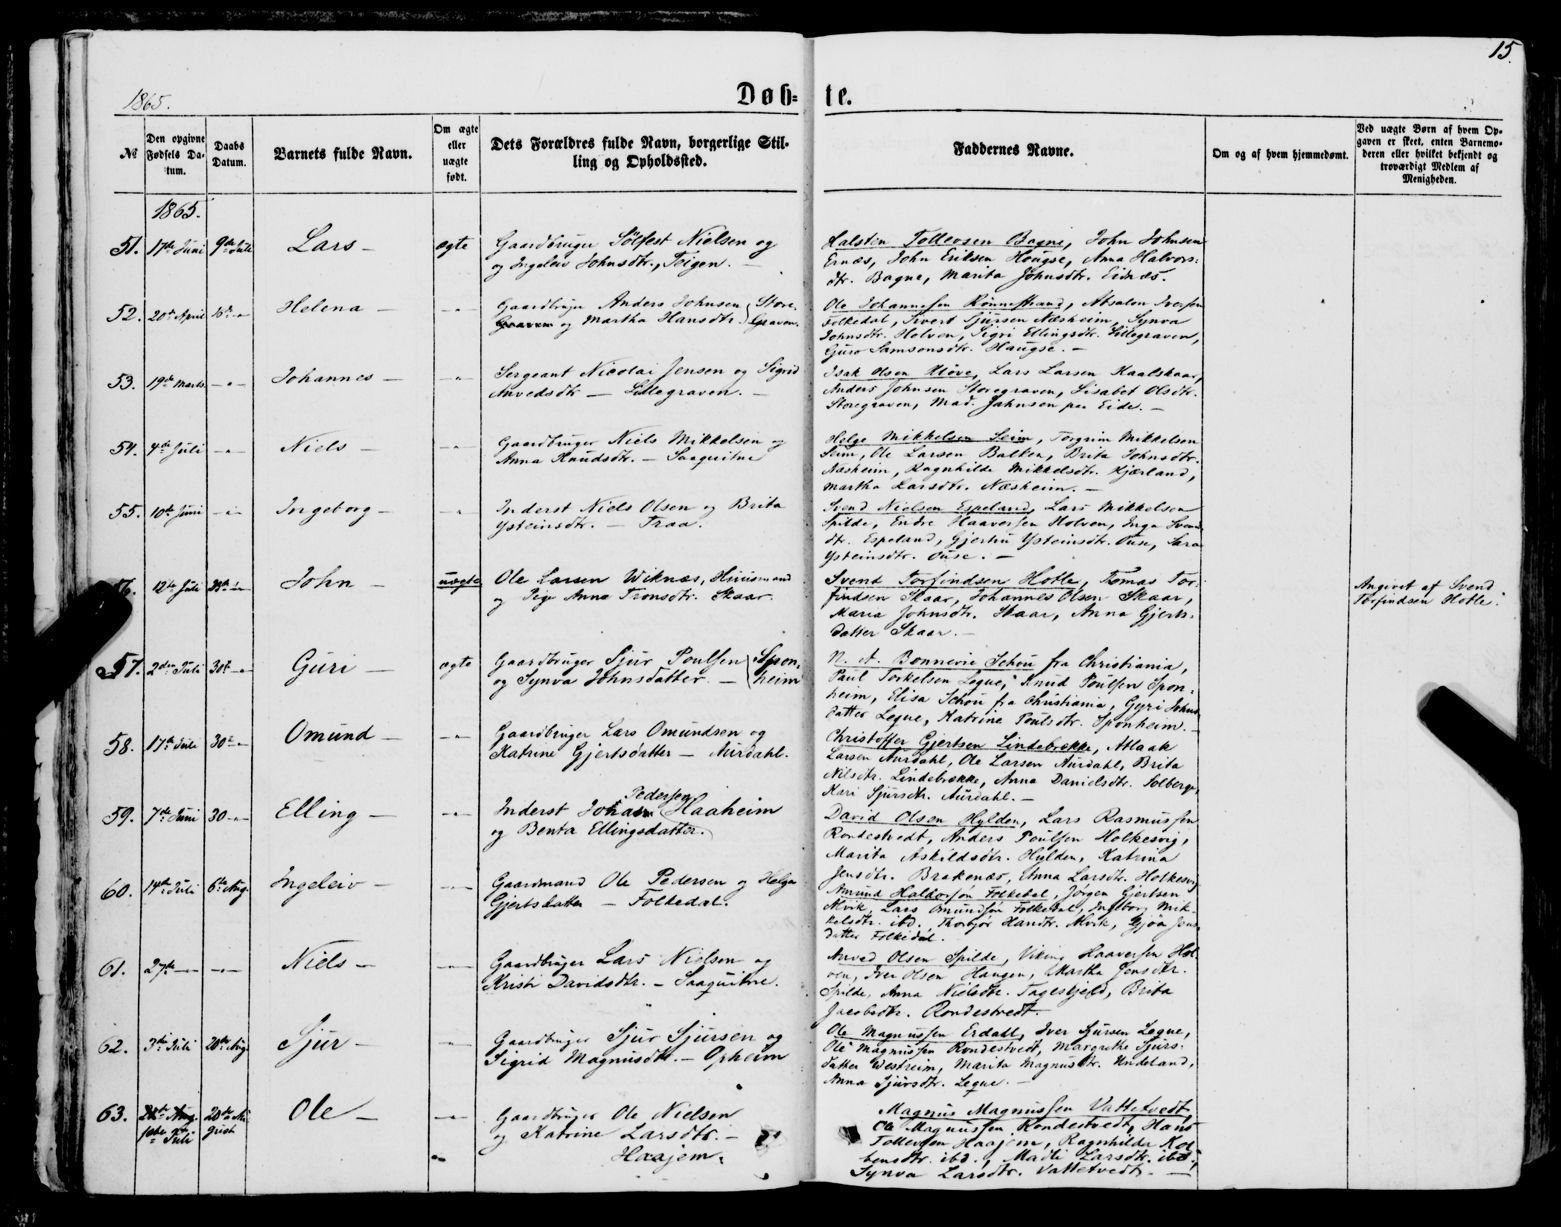 15.
1865.
Døb= te.
№
Den opgivne Fødsels Datum.
Daabs Datum.
Barnets fulde Navn.
Om ægte eller uægte født.
Dets Forældres fulde Navn, borgerlige Stilling og Opholdssted.
Faddernes Navne.
Om og af hvem hjemmedømt.
Ved uægte Børn af hvem Opgaven er skeet, enten Barnemoderen eller hvilket bekjendt og troværdigt Medlem af Menigheden.
1865.
51. 17de Juni 9de Juli Lars – ægte
Gaardbruger Sölfest Nielsen og
og Ingeleiv Johnsdtr., Teigen. –
Halstin Tollevsen Bagne, John Johnsen
Ernæs, John Eriksen Haugse, Anna Halvors=
dtr. Bagne, Marita Johnsdtr. Eidnæs.
52. 20de April Helena – –"–
Gaardbruger Anders Johnsen Store=
og Martha Hansdtr. Graven.
Ole Johannessen Rönnestrand, Absalon Iversen
Folkedal, Sivert Sjursen Næsheim, Synva
Johnsdtr. Holven, Sigri Ellingsdtr. Lillegraven,
Guro Samsonsdtr. Haugse. –
53. 19de Marts –"– Johannes – –"–
Sergeant Nicolai Jensen og Sigrid
Anvedsdtr – Lillegraven. –
Isak Olsen Kløve, Lars Larsen Kaalskaar,
Anders Johnsen Storegraven, Lisabet Olsdtr.
Storegraven, Mad. Jahnsen paa Eide. –
54. 4de Juli –"– Niels – –"–
Gaardbruger Niels Mikkelsen og
Anna Knudsdtr. – Saaquitne
Helge Mikkelsen Seim, Torgrim Mikkelsen
Seim, Ole Larsen Balten, Brita Johnsdtr.
Næsheim, Ragnhilde Mikkelsdtr. Kjærland,
Martha Larsdtr. Næsheim. –
55. 10de Juni –"– Ingeborg – –"–
Inderst Niels Olsen og Brita
Ysteinsdtr. – Traa.
Svend Nielsen Espeland, Lars Mikkelsen
Spilde, Endre Haaversen Holven, Inga Svends
dtr. Espeland, Gjertru Ysteinsdtr. Ouse, Sara
Ysteinsdtr. Ouse. –
56. 12te Juli John – uægte
Ole Larsen Wiknæs, Huusmand
og Pige Anna Tronsdtr. Skaar
Svend Torfindsen Hotle, Tomas Tor=
findsen Skaar, Johannes Olsen Skaar,
Maria Johnsdtr. Skaar, Anna Gjerts=
datter Skaar. –
Angivet af Svend
Torfindsen Hotle.
57. 2den Juli 30te –"– Guri – ægte
Gaardbruger Sjur Poulsen Spon=
og Synva Johnsdatter. – heim
N. A. Bonnevie Schou fra Christiania,
Paul Torkelsen Legne, Knud Poulsen Spon=
heim, Elisa Schou fra Christiania, Gyri Johns
datter Legne, Katrine Poulsdtr. Sponheim. –
58. 17de Juli 30te –"– Omund – –"–
Gaardbruger Lars Omundsen og
Katrine Gjertsdatter – Aurdahl.
Christoffer Gjertsen Lindebrække, Atlaak
Larsen Aurdahl, Ole Larsen Aurdahl, Brita
Nilsdtr. Lindebrække, Anna Danielsdtr. Solberg,
Kari Sjursdtr. Aurdahl. –
59. 7de Juni 30 –"– Elling – –"–
Pedersen
Inderst Johan Haaheim
og Benta Ellingsdatter.
David Olsen Hylden, Lars Rasmussen
Rondestvedt, Anders Poulsen Holkesvig,
Marita Askildsdtr. Hylden, Katrina
Jensdtr. Brakenæs, Anna Larsdtr. Holkesvig
60. 14de Juli 6te Aug. Ingeleiv – –"–
Gaardmand Ole Pedersen og Helga
Gjertsdatter – Folkedal.
Amund Haldorsøn Folkedal, Jørgen Gjertsen
Alvik, Lars Omundsøn Folkedal, Ingeborg Mik=
kelsdtr. ibd., Thorbjør Hansdtr. Alvik, Gjøa Jens
datter Folkedal.
61. 27de – –"– Niels – –"–
Gaardbruger Lars Nielsen og
Kristi Davidsdtr. – Saaquitne.
Anved Olsen Spilde, Viking Haaversen Hol
ven, Iver Olsen Haugen, Martha Jensdtr.
Spilde, Anna Nielsdtr. Brita
Jacobsdtr. Rondestvedt –
62. 3die Juli 20de Aug. Sjur – –"–
Gaardbruger Sjur Sjursen og
Sigrid Magnusdtr. – Opheim
Ole Magnussen Erdall, Iver Sjursen Legne,
Ole Magnussen Rondestvedt, Margrethe Sjurs=
datter Westrem, Marita Magnusdtr. Undeland,
Anna Sjursdtr. Legne. –
63. Juli 20de Au gust Ole – –"–
Gaardbruger Ole Nielsen
og Katrine Larsdtr. –
Haajem.
Magnus Magnussen Vattetvedt,
Ole Magnussen Rondestvedt, Hans
Tollevsen Haajem, Ragnhilda Kol
bensdtr. ibd., Madli Larsdtr. ibd.,
Synva Larsdtr. Vattetvedt. –